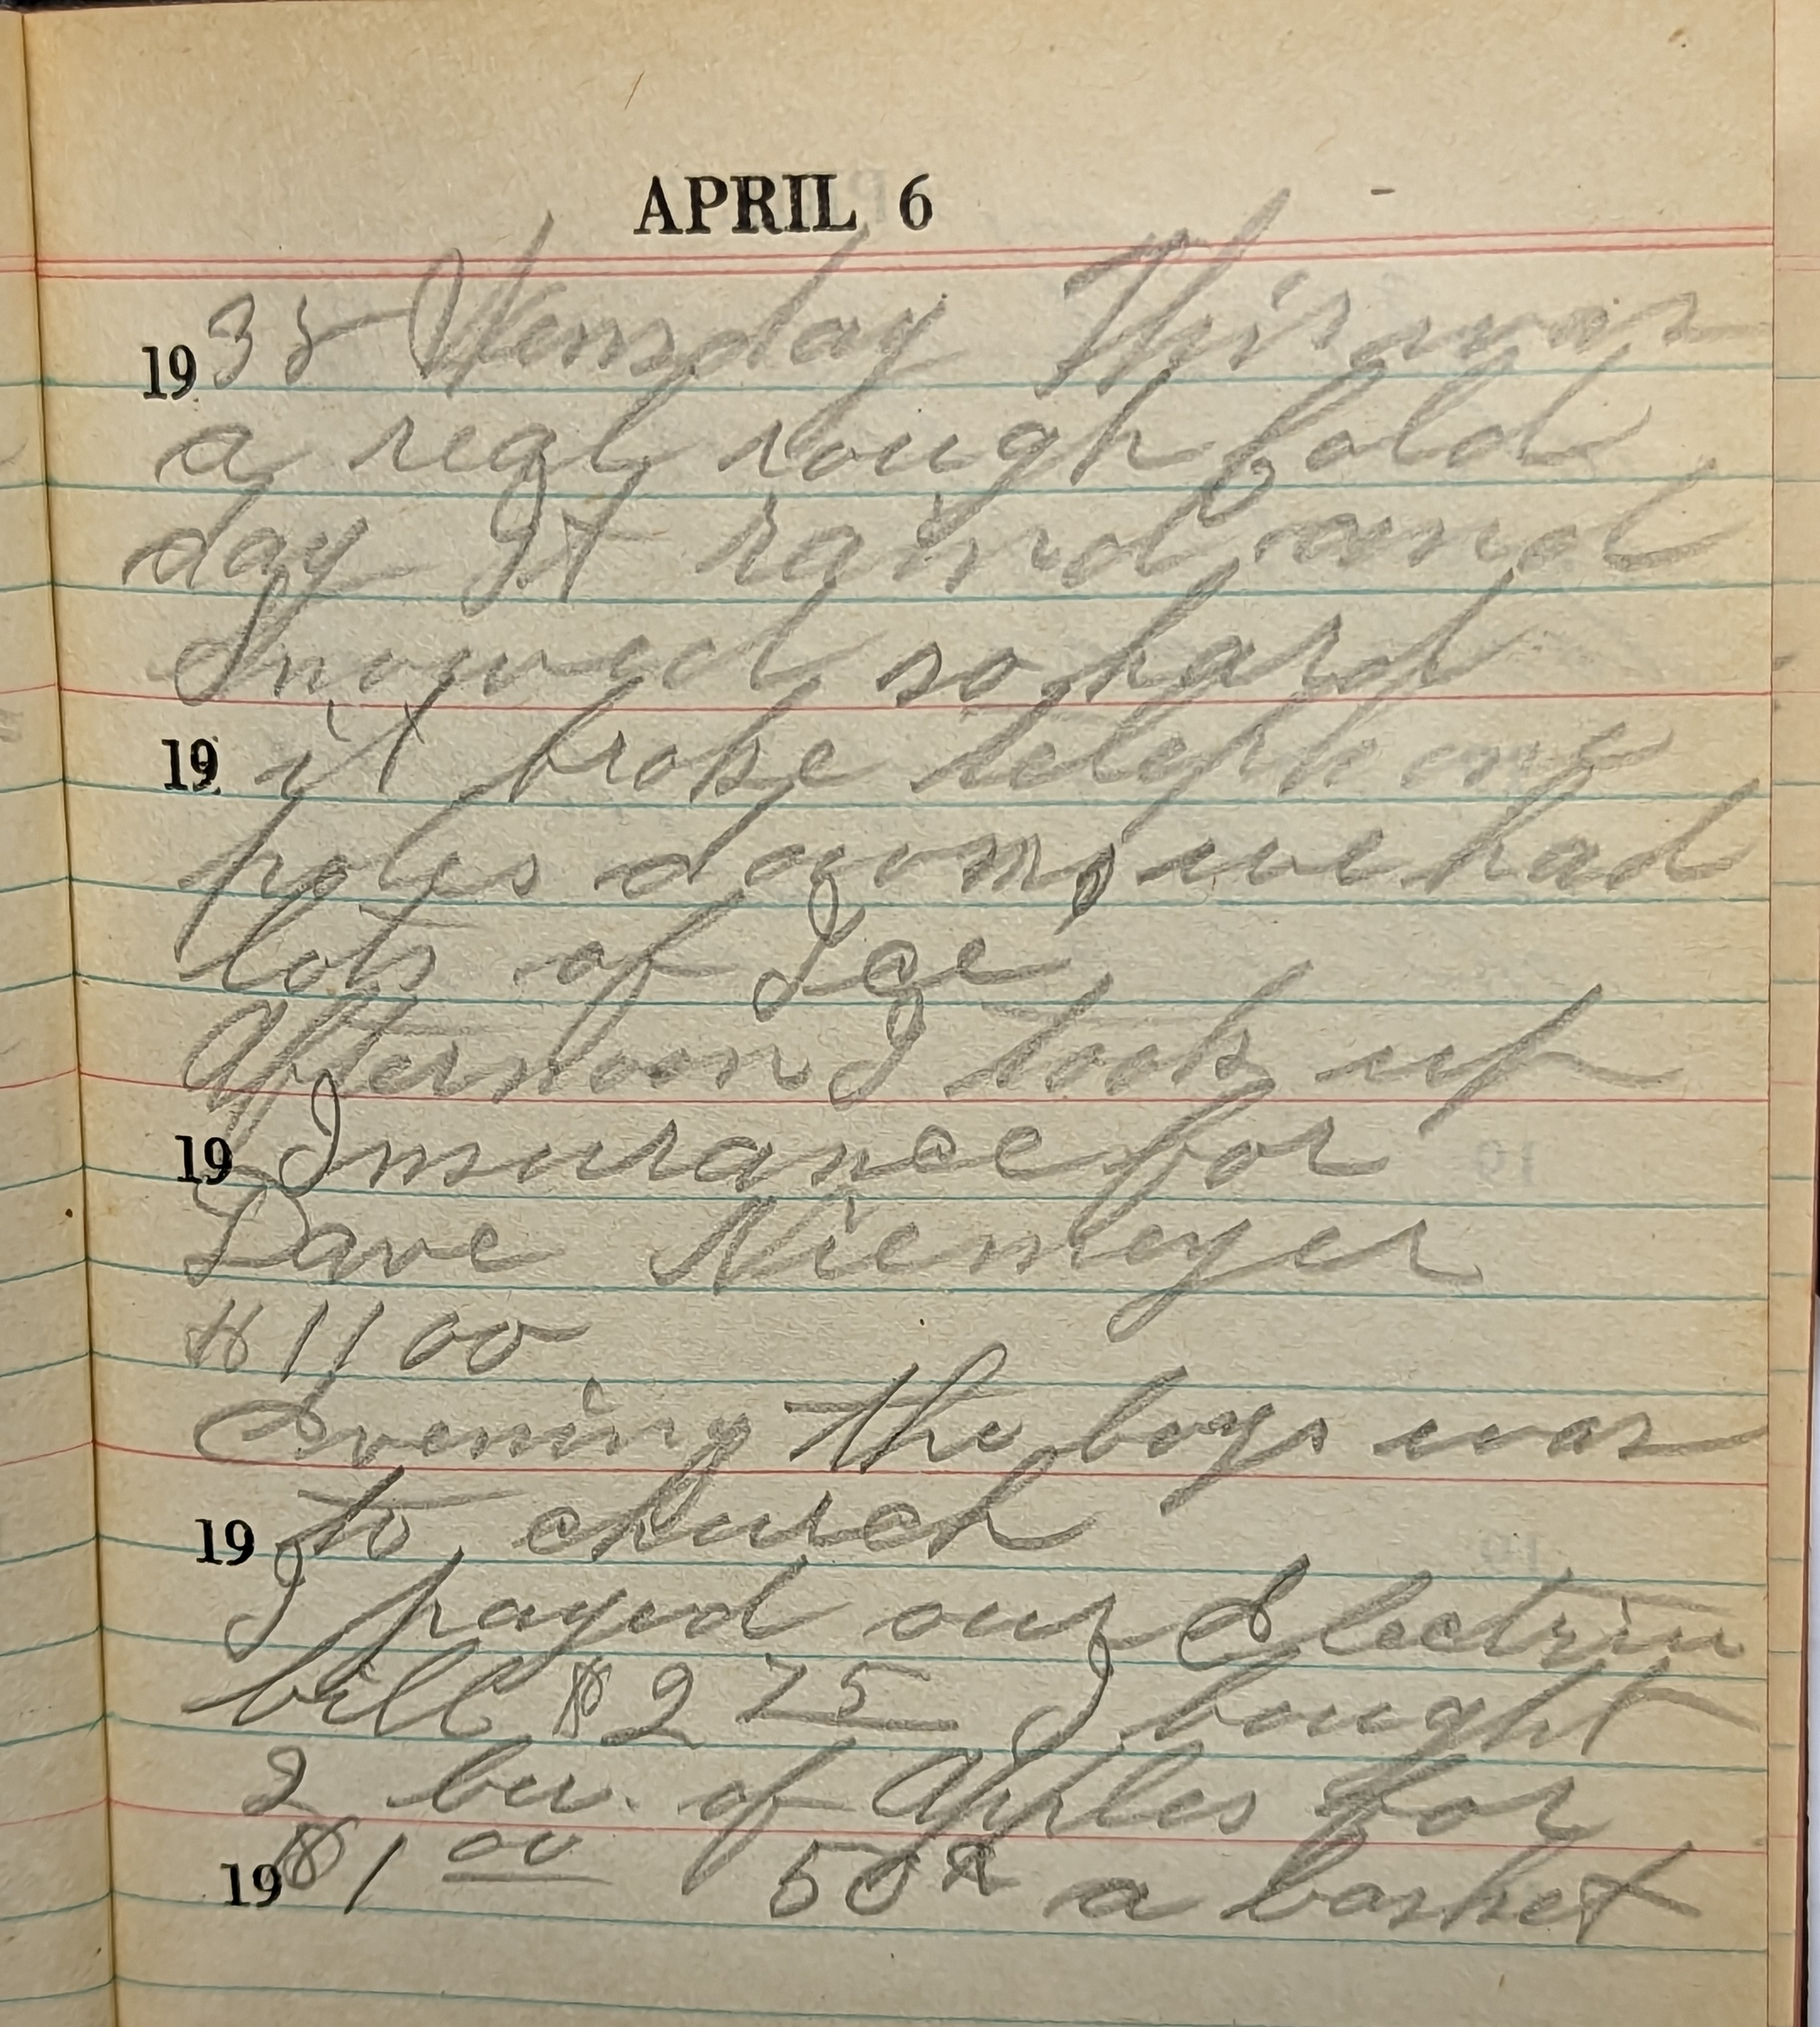 APRIL 6
1938 Wensday This was
a real rough Cold
day It raind and
Snowed so hard
19 it broke telephone
poles down, we had
lots of Ice
Afternoon I took up
19 Insurance for
Dave Niemeyer
$1100
Evening the boys was
19 to church
I payed our Electric
bill $2 75 I bought
2 bu. of Apples for
19 $1 00 50¢ a basket